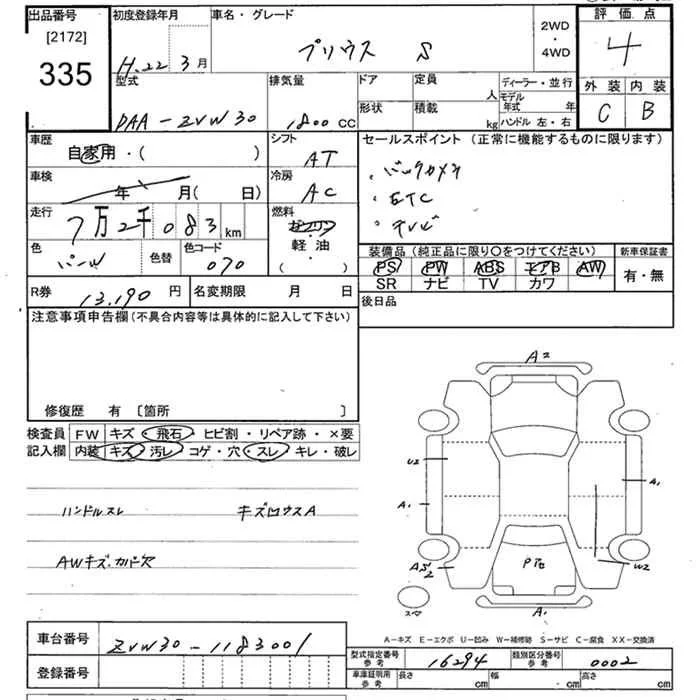 出品番号 初度登録年月 車名・グレード 2WD・4WD 評価点
[2172]
335 H.22 3月 プリウス S 4
型式 排気量 ドア 定員 人 ディーラー・並行 外装 内装
形状 積載 kg モデル年式 年 C B
DAA-ZVW30 1800 CC ハンドル 左・右
車歴 自家用・( ) シフト AT セールスポイント(正常に機能するものに限ります)
車検 年 月( 日) 冷房 AC ・バックカメラ
・ETC
走行 7万2千083km 燃料 ガソリン ・テレビ
色 パール 色替 色コード 070 軽油・( ) 装備品(純正品に限り〇をつけてください) 新車保証書
PS PW ABS エアB AW 有・無
R券 13,190円 名変期限 月 日 SR ナビ TV カワ
注意事項申告欄(不具合内容等は具体的に記入して下さい) 後日品
修復歴 有 〔箇所 〕
検査員 FW キズ・飛石・ヒビ割・リペア跡・×要
記入欄 内装 キズ・汚レ・コゲ・穴・スレ・キレ・破レ
ハンドルスレ キズロウスA
AWキズ・
A2
U2
A1
A1
W2
A1
A-キズ E-エクボ U-凹み W-補修跡 S-サビ C-腐食 XX-交換済
車台番号 ZVW30-1183001
登録番号
型式指定番号 参考 16294 類別区分番号 参考 0002
車庫証明用 参考 長さ cm 幅 cm 高さ cm